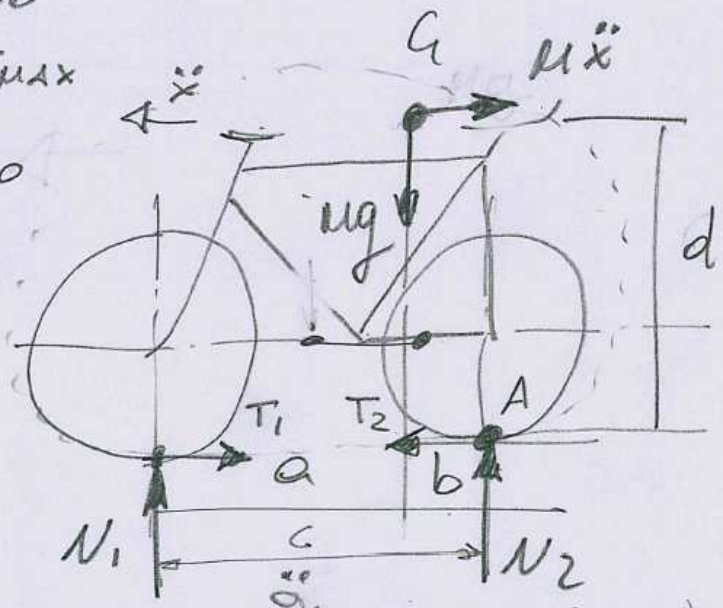 MAX
ẍ
G
Mẍ
Mg
d
T₁
T₂
A
a
b
N₁
c
N₂